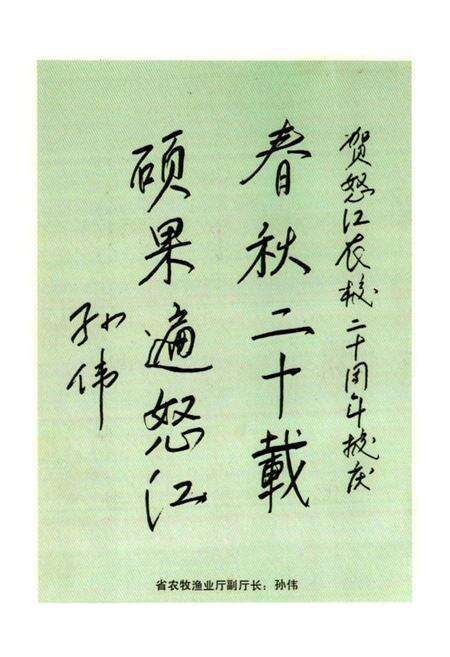 贺怒江农校二十周年校庆
春秋二十載
硕果遍怒江
孙伟
省农牧渔业厅副厅长：孙伟